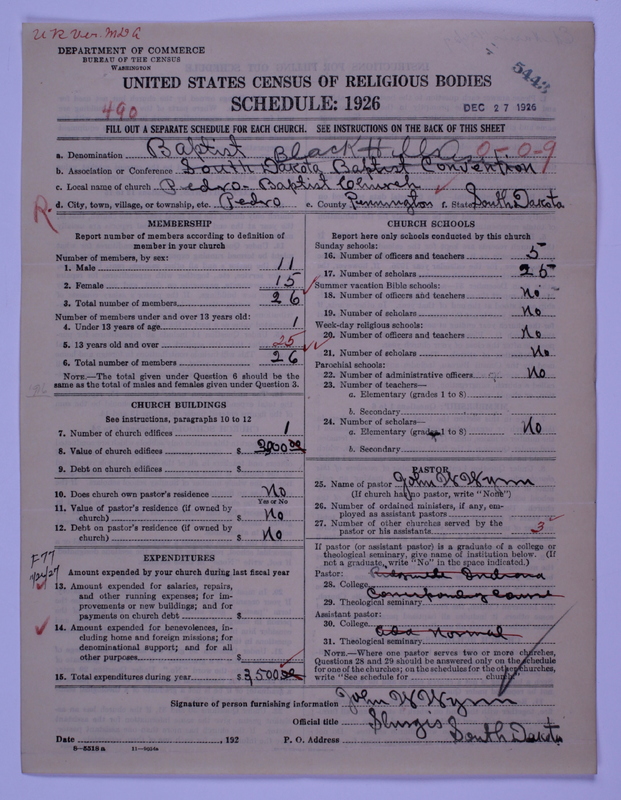 DEPARTMENT OF COMMERCE
BUREAU OF THE CENSUS
WASHINGTON
5443
UNITED STATES CENSUS OF RELIGIOUS BODIES
490
SCHEDULE: 1926
DEC 27 1926
FILL OUT A SEPARATE SCHEDULE FOR EACH CHURCH. SEE INSTRUCTIONS ON THE BACK OF THIS SHEET
a. Denomination Baptist Black Hills 0-0-9
b. Association or Conference South Dakota Baptist Convention
c. Local name of church Pedro-Baptist Church
R. d. City, town, village, or township, etc. Pedro e. County Pennington f. State South Dakota
MEMBERSHIP
Report number of members according to definition of
member in your church
Number of members, by sex:
1. Male 11
2. Female 15
3. Total number of members 26
Number of members under and over 13 years old:
4. Under 13 years of age 1
5. 13 years old and over 25
6. Total number of members 26
NOTE.—The total given under Question 6 should be the
same as the total of males and females given under Question 3.
CHURCH BUILDINGS
See instructions, paragraphs 10 to 12
7. Number of church edifices 1
8. Value of church edifices $
9. Debt on church edifices $
10. Does church own pastor's residence No
Yes or No
11. Value of pastor's residence (if owned by
church) $ No
12. Debt on pastor's residence (if owned by
church) $ No
EXPENDITURES
Amount expended by your church during last fiscal year
13. Amount expended for salaries, repairs,
and other running expenses; for im-
provements or new buildings; and for
payments on church debt $
14. Amount expended for benevolences, in-
cluding home and foreign missions; for
denominational support; and for all
other purposes $
15. Total expenditures during year $
CHURCH SCHOOLS
Report here only schools conducted by this church
Sunday schools:
16. Number of officers and teachers 5
17. Number of scholars 25
Summer vacation Bible schools:
18. Number of officers and teachers No
19. Number of scholars No
Week-day religious schools:
20. Number of officers and teachers No
21. Number of scholars No
Parochial schools:
22. Number of administrative officers No
23. Number of teachers—
a. Elementary (grades 1 to 8)
b. Secondary
24. Number of scholars—
a. Elementary (grades 1 to 8) No
b. Secondary
PASTOR
25. Name of pastor John W Wynn
(If church has no pastor, write "None")
26. Number of ordained ministers, if any, em-
ployed as assistant pastors
27. Number of other churches served by the
pastor or his assistants 3
If pastor (or assistant pastor) is a graduate of a college or
theological seminary, give name of institution below. (If
not a graduate, write "No" in the space indicated.)
Pastor: Indiana
28. College
Correspondence Course
29. Theological seminary
Assistant pastor:
30. College
Normal
31. Theological seminary
NOTE.—Where one pastor serves two or more churches,
Questions 28 and 29 should be answered only on the schedule
for one of the churches; on the schedules for the other churches,
write "See schedule for church."
Signature of person furnishing information John W Wynn
Official title
Date , 192 P. O. Address Sturgis South Dakota
8-5518a 11-9024a